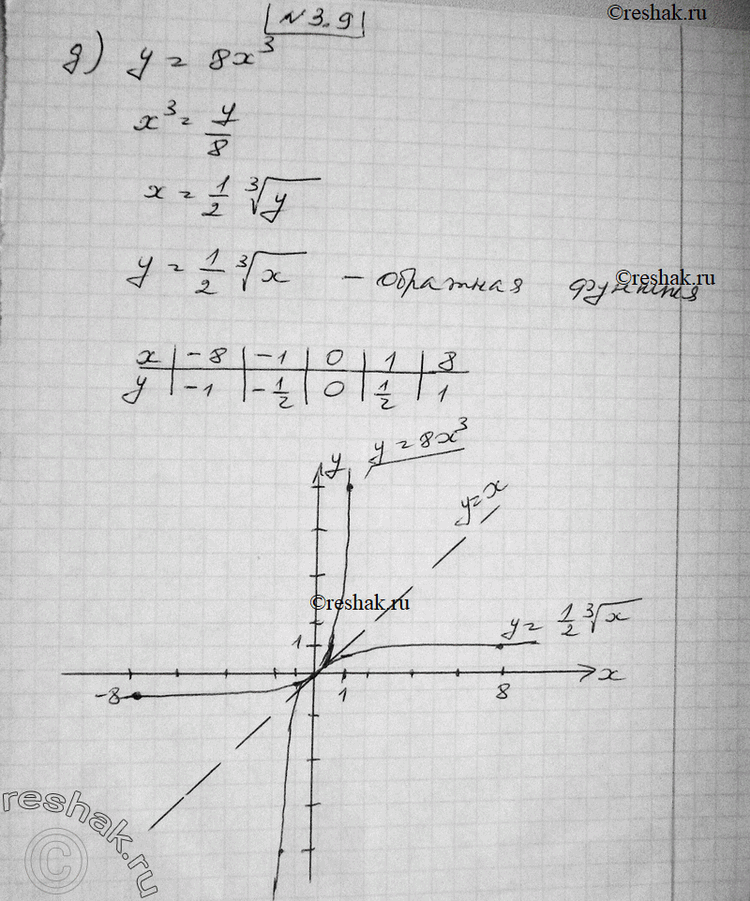 ©reshak.ru
№3.9
д) y = 8x³
x³ = y/8
x = 1/2 ∛y
y = 1/2 ∛x – обратная функция
©reshak.ru
x | -8 | -1 | 0 | 1 | 8
y | -1 | -1/2 | 0 | 1/2 | 1
y y = 8x³
y=x
©reshak.ru
y = 1/2 ∛x
1
-8 1 8 x
reshak.ru
©